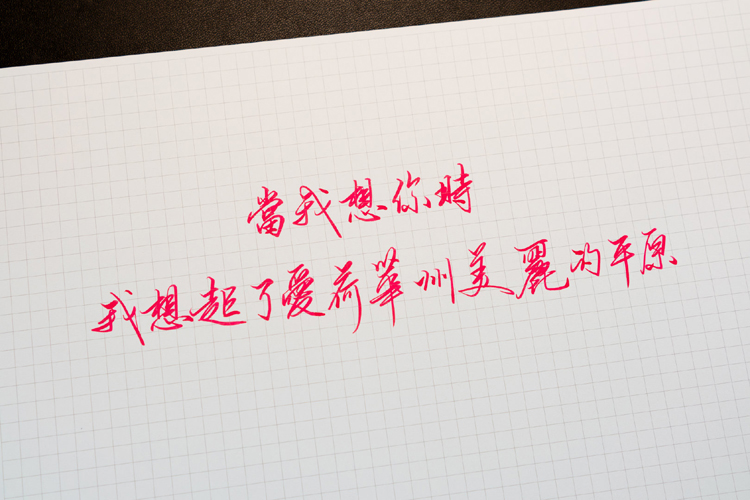 當我想你時
我想起了愛荷華州美麗的平原